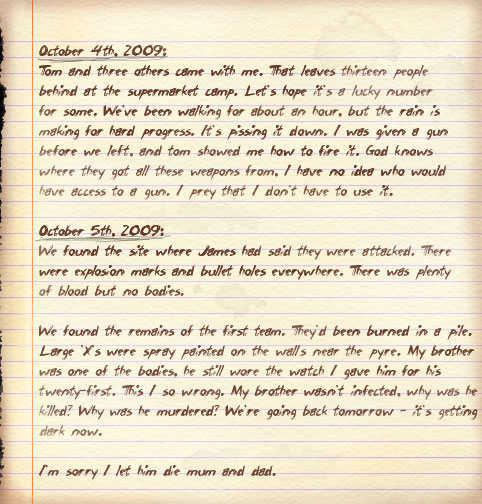 October 4th, 2009:
Tom and three others came with me. That leaves thirteen people
behind at the supermarket camp. Let's hope it's a lucky number
for some. We've been walking for about an hour, but the rain is
making for hard progress. It's pissing it down. I was given a gun
before we left, and tom showed me how to fire it. God knows
where they got all these weapons from, I have no idea who would
have access to a gun. I prey that I don't have to use it.
October 5th, 2009:
We found the site where James had said they were attacked. There
were explosion marks and bullet holes everywhere. There was plenty
of blood but no bodies.
We found the remains of the first team. They'd been burned in a pile.
Large 'X's were spray painted on the walls near the pyre. My brother
was one of the bodies, he still wore the watch I gave him for his
twenty-first. This I so wrong. My brother wasn't infected, why was he
killed? Why was he murdered? We're going back tomorrow - it's getting
dark now.
I'm sorry I let him die mum and dad.